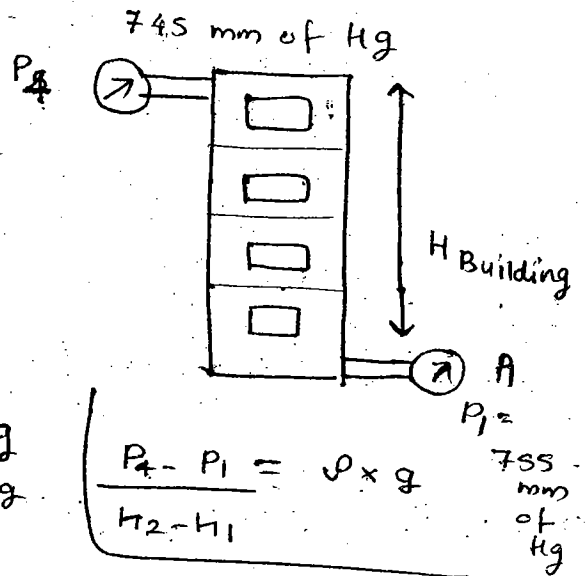 745 mm of Hg
P4
H Building
A
P1 =
755
mm
of
Hg
g
g
P4 - P1 / H2 - H1 = ρ × g